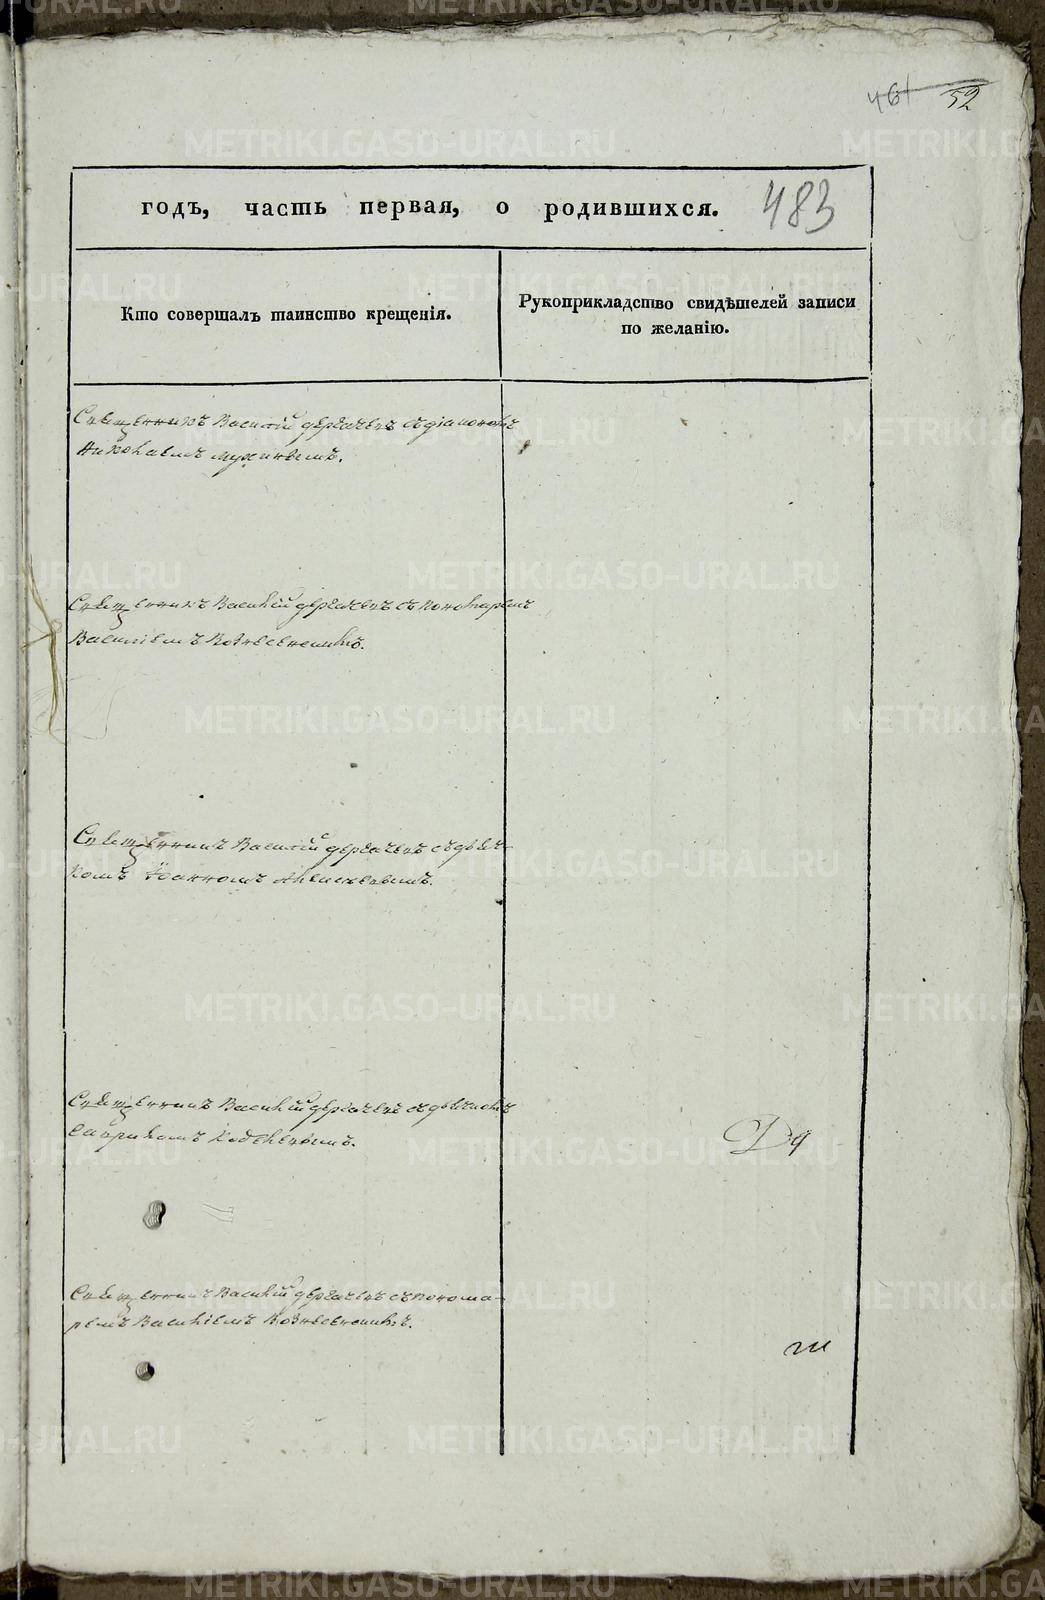 461 52
годъ, часть первая, о родившихся. 483
Кто совершалъ таинство крещенія.
Рукоприкладство свидѣтелей записи
по желанію.
Священникъ Василій Дергачевъ съ діакономъ
Николаемъ Мухинымъ.
Священникъ Василій Дергачевъ съ пономаремъ
Василіемъ Вознесенскимъ.
Священникъ Василій Дергачевъ съ дьяч-
комъ Іоанномъ Алексѣевымъ.
Священникъ Василій Дергачевъ съ дьячкомъ
Гавриломъ
Священникъ Василій Дергачевъ съ понома-
ремъ Василіемъ Вознесенскимъ.
METRIKI.GASO-URAL.RU